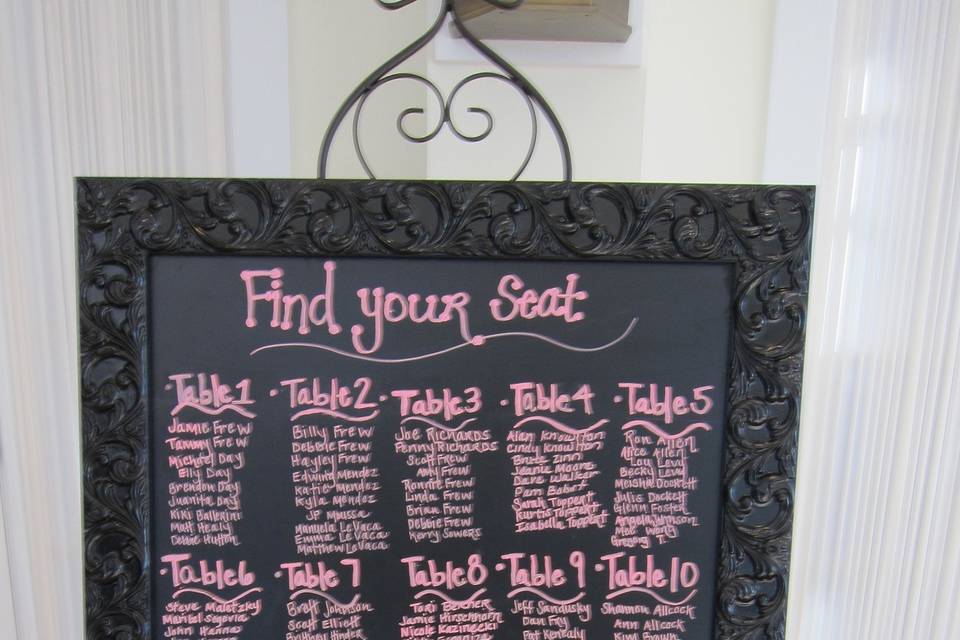 Find your Seat
Table 1
Jamie Frew
Tammy Frew
Michael Day
Elly Day
Brendon Day
Juanita Day
Kiki Ballerini
Matt Healy
Debbie Hutton
Table 2
Billy Frew
Debbie Frew
Hayley Frew
Edwing Mendez
Katie Mendez
Kyla Mendez
JP Moussa
Manuela LeVaca
Emma LeVaca
Matthew LeVaca
Table 3
Joe Richards
Penny Richards
Scott Frew
Amy Frew
Ronnie Frew
Linda Frew
Brian Frew
Debbie Frew
Kerry Sowers
Table 4
Alan Knowlton
Cindy Knowlton
Zinn
Jeanie Moore
Dave Walker
Pam
Sarah Toppert
Kurtis Toppert
Isabella Toppert
Table 5
Ron Allen
Alice Allen
Lou Levy
Becki Levy
Meisha Dockett
Julie Dockett
Glenn Foster
Angela Johnson
Mae Wong
Gregory T.
Table 6
Steve Maletzky
Maribel Segovia
John Hanna
Table 7
Brett Johnson
Scott Elliott
Brittney Hinder
Table 8
Tori Belcher
Jamie Hirschhorn
Nicole Kazinecki
Table 9
Jeff Sandusky
Dan Fry
Pat Kenealy
Table 10
Shannon Allcock
Ann Allcock
Kim Brown